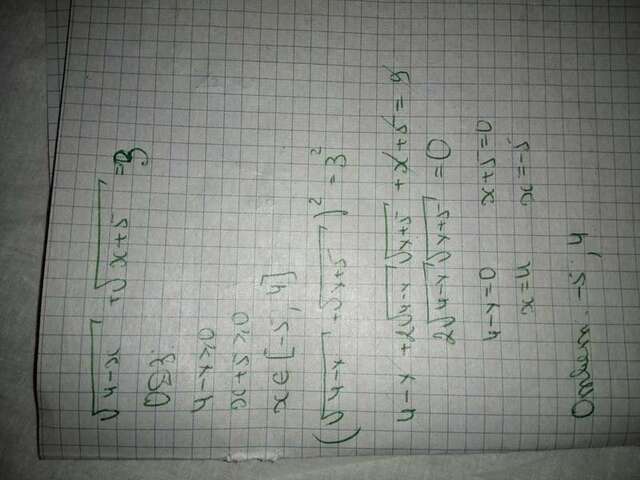 √4-x + √x+5 = 3
ОДЗ:
4-x≥0
x+5≥0
x∈[-5, 4]
(√4-x + √x+5)² = 3²
4-x + 2√4-x √x+5 + x+5 = 9
2√4-x √x+5 = 0
4-x=0 x+5=0
x=4 x=-5
Ответ. -5; 4